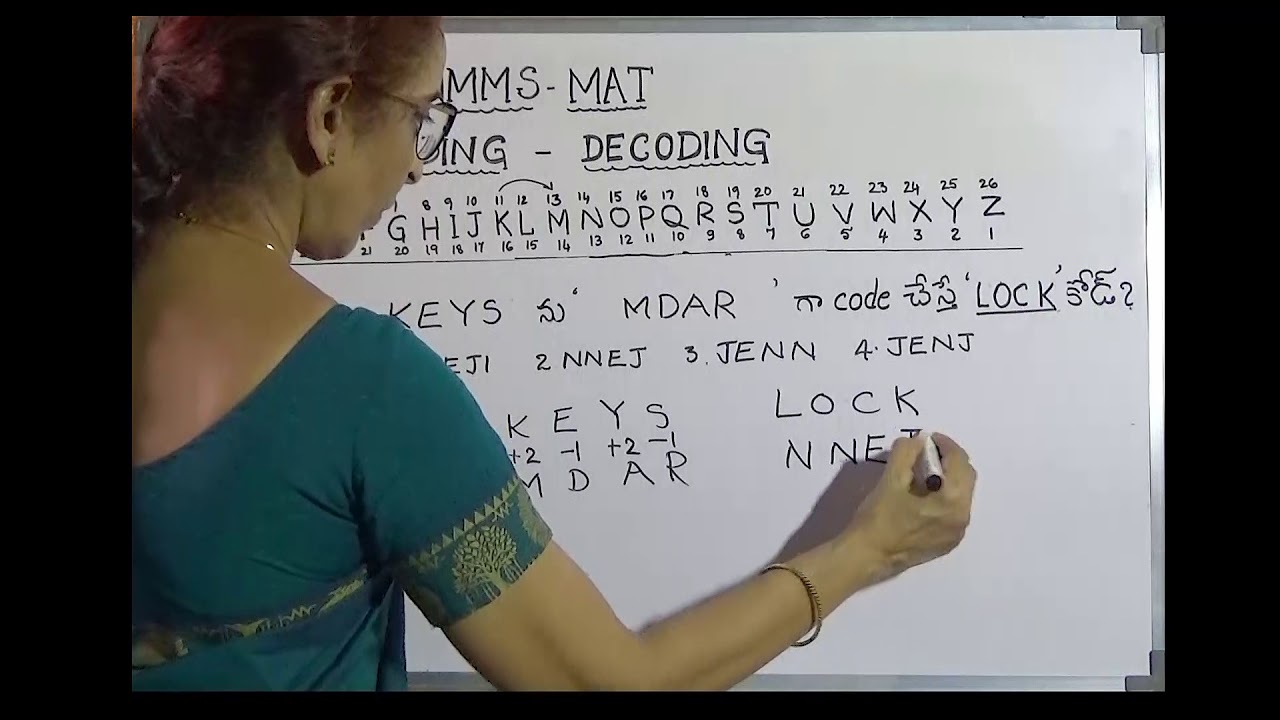 MMS - MAT
DING - DECODING
8 9 10 11 12 13 14 15 16 17 18 19 20 21 22 23 24 25 26
G H I J K L M N O P Q R S T U V W X Y Z
21 20 19 18 17 16 15 14 13 12 11 10 9 8 7 6 5 4 3 2 1
KEYS ను ' MDAR ' గా code చేస్తే 'LOCK' కోడ్?
EJI 2 NNEJ 3. JENN 4. JENJ
K E Y S LOCK
+2 -1 +2 -1 NNE
M D A R